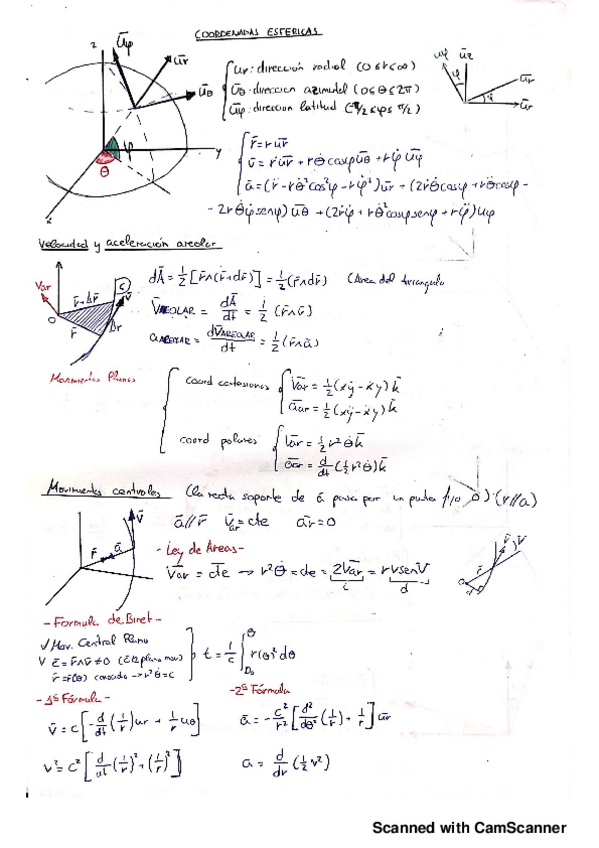 COORDENADAS ESFERICAS
z
ūφ
ūr
ūθ
y
φ
θ
x
ūr: dirección radial (0≤r<∞)
ūθ: direccion azimutal (0≤θ≤2π)
ūφ: direccion latitud (-π/2≤φ≤π/2)
uφ ūz
φ
ūr
φ
ūr
r̄=r ūr
v̄=ṙūr+rθ̇ cosφūθ+rφ̇ ūφ
ā=(r̈-rθ̇²cos²φ-rφ̇²)ūr+(2ṙθ̇cosφ+rθ̈cosφ-
-2rθ̇φ̇senφ)ūθ+(2ṙφ̇+rθ̇²cosφsenφ+rφ̈)uφ
Velocidad y aceleración areolar
Var
r̄+Δr̄
C
v̄
O
r̄
Δr
dĀ=1/2[r̄∧(r̄+dr̄)]=1/2(r̄∧dr̄) (Area del triangulo
V̄AREOLAR = dĀ/dt = 1/2 (r̄∧v̄)
aAREOLAR = dV̄AREOLAR/dt = 1/2 (r̄∧ā)
Movimientos Planos
coord cartesianas
V̄ar=1/2(xẏ-ẋy)k̄
āar=1/2(xÿ-ẍy)k̄
coord polares
V̄ar=1/2 r²θ̇ k̄
āar=d/dt(1/2 r²θ̇)k̄
Movimientos centrales (la recta soporte de ā pasa por un punto fijo O) (r//a)
v̄
r̄
ā
ā//r̄ v̄ar=cte ār=0
-Ley de Areas-
V̄ar = c̄te → r²θ̇=cte=2V̄ar=rvsenV
c
d
-Formula de Binet-
√Mov. Central Plano
√ c̄=r̄∧v̄≠0 (cte plano mov)
r̄=r(θ) conocido→r²θ̇=c
t=1/c ∫ r(θ)² dθ
θ
θ₀
-1ª Fórmula-
-2ª Fórmula
v̄=c[-d/dt(1/r)ur + 1/r uθ]
ā=-c²/r²[d²/dθ²(1/r)+1/r]ūr
v²=c²[d/dt(1/r)²+(1/r)²]
a=d/dr(1/2 v²)
Scanned with CamScanner